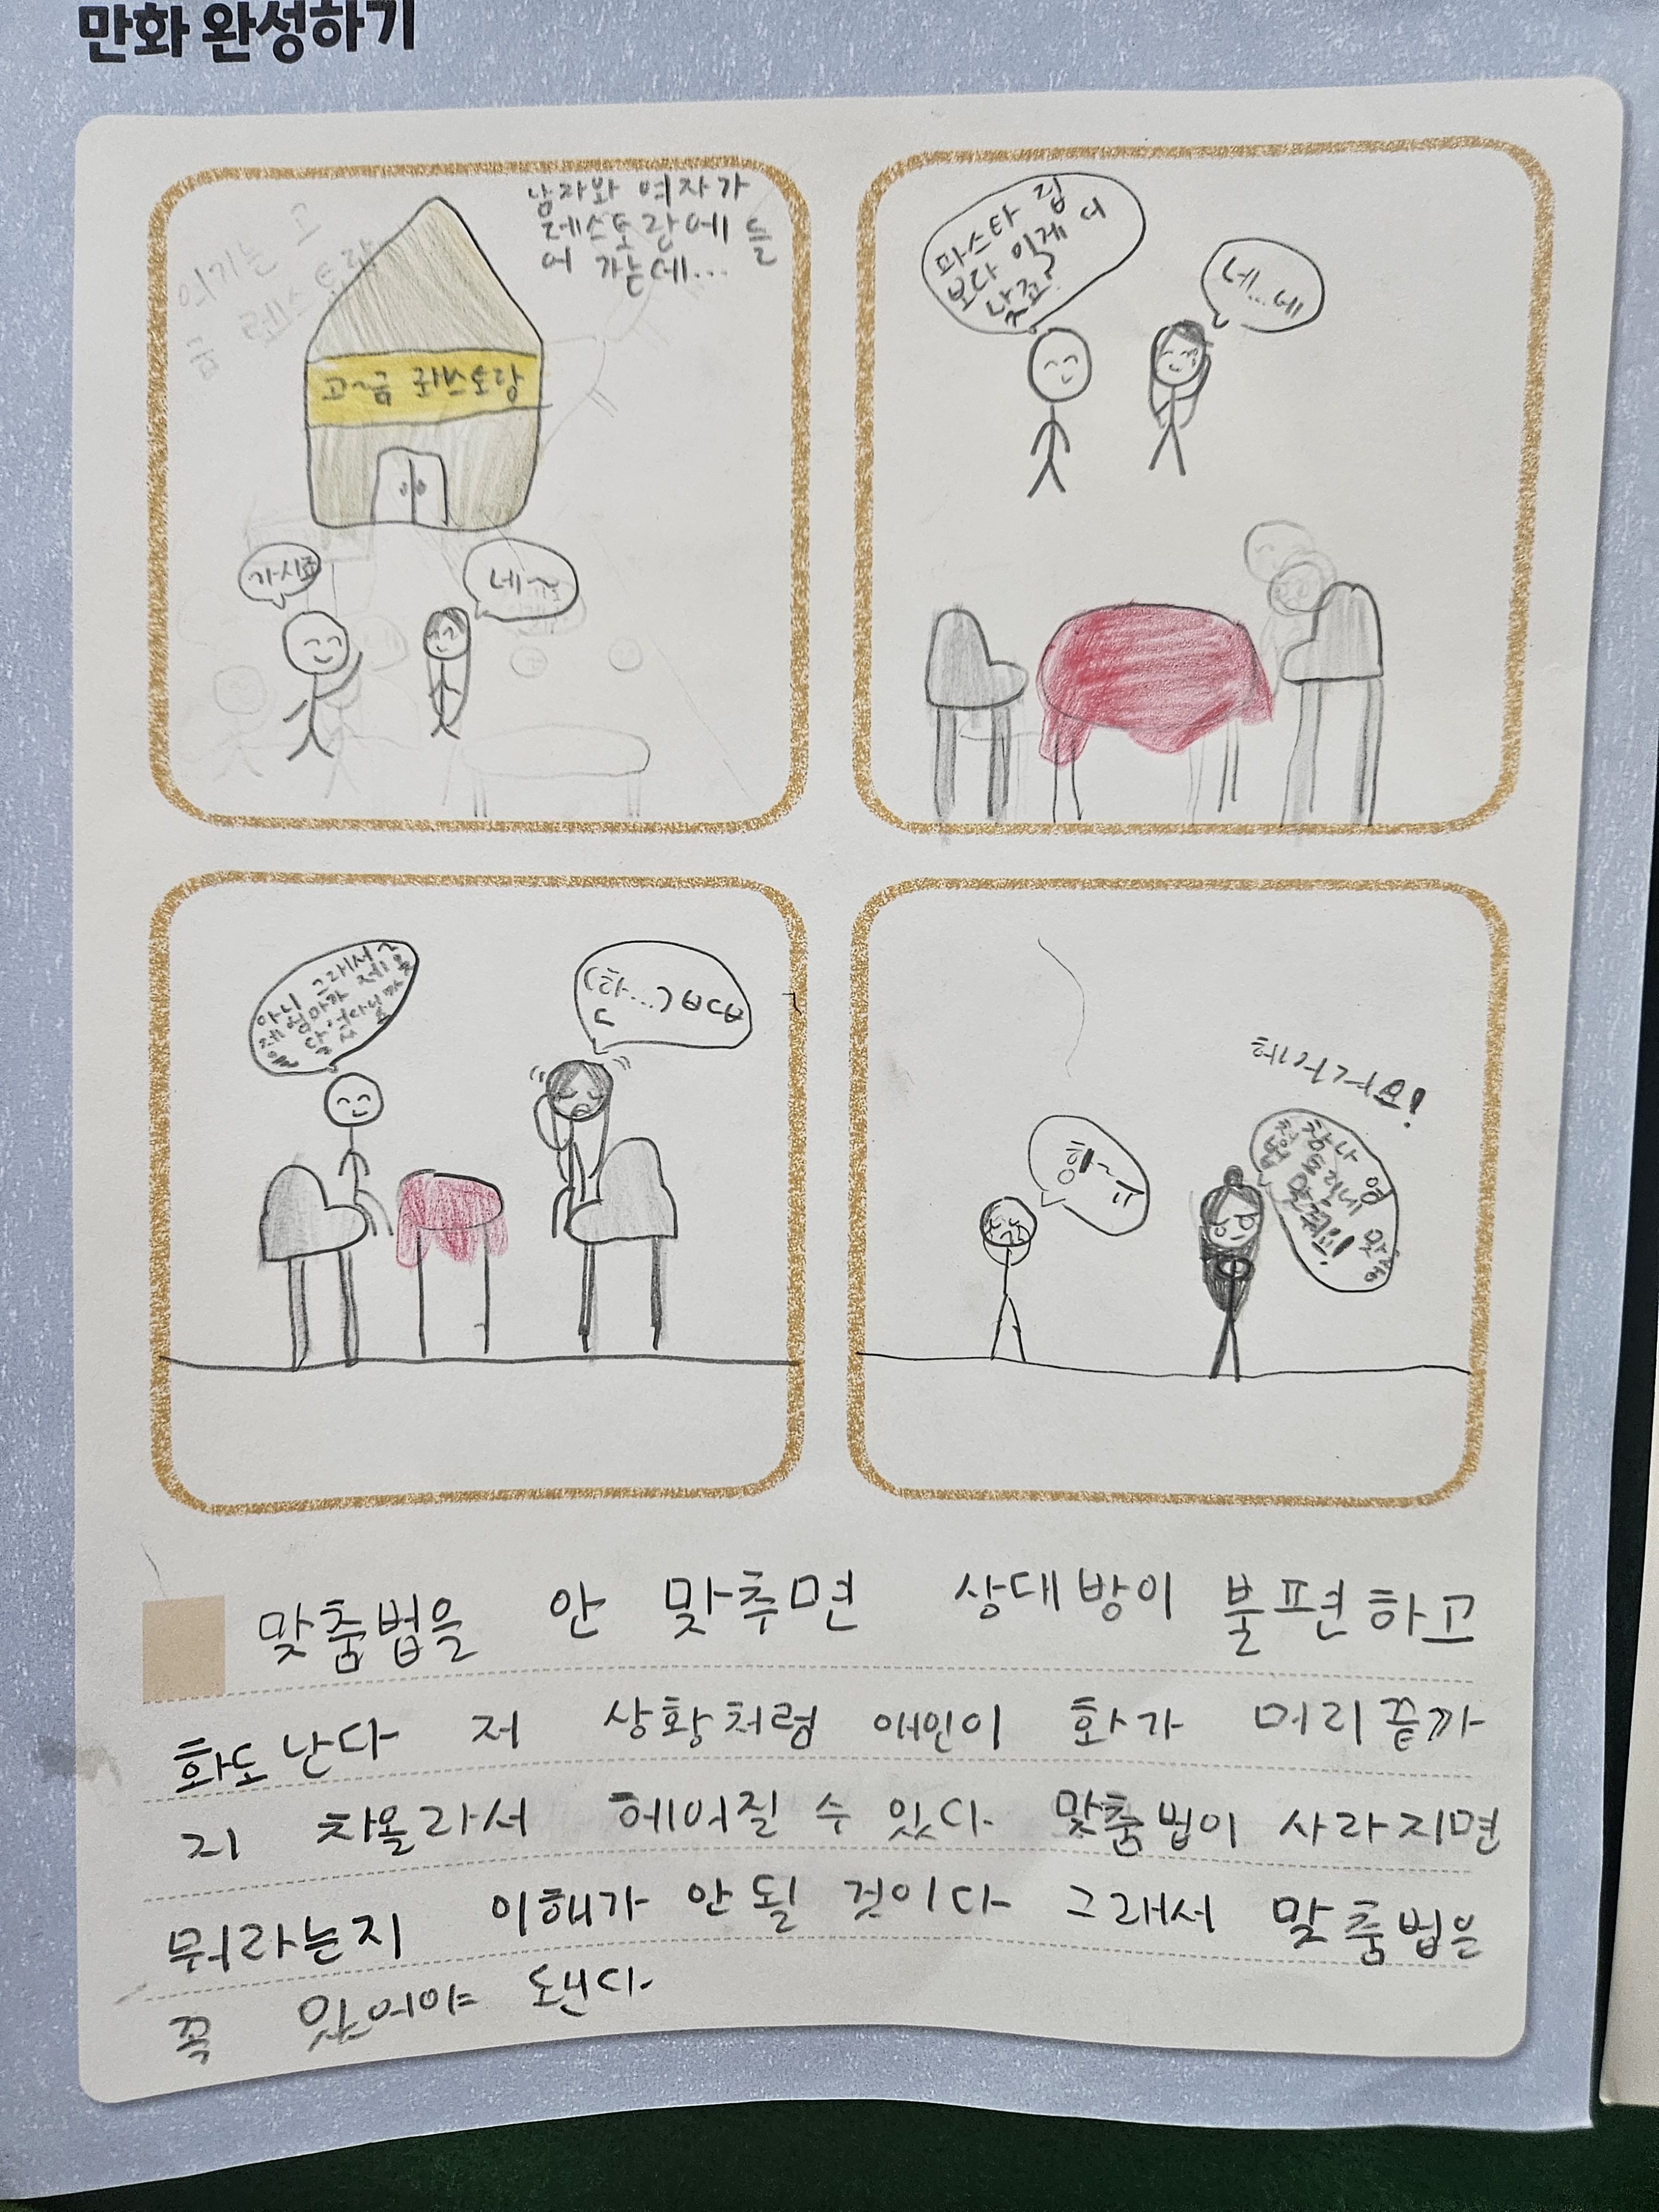 만화 완성하기
남자와 여자가
레스토랑에 들
어 가는데...
여기는 고
금 레스토랑
고~급 레스토랑
가시죠
네~
파스타 집
보다 이게 더
낳죠?
네...네
아니 그래서~
제 엄마가
하나가는
맞춤법을 안 맞추면 상대방이 불편하고
화도 난다 저 상황처럼 애인이 화가 머리끝까
지 차올라서 헤어질 수 있다 맞춤법이 사라지면
뭐라는지 이해가 안 될 것이다 그래서 맞춤법은
꼭 있어야 됀다